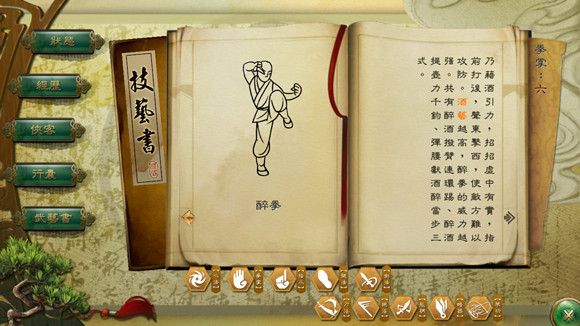 狀態
經歷
俠客
行囊
武藝書
技藝書
醉拳
拳掌：六
乃藉酒引力，招招虛中有實，指
前打後，聲東擊西，使敵方難以
攻防。酒藝越高，醉拳的威力越
強。共有醉酒撥臂連環踢、醉酒
提壺力千鈞、彈腰獻酒醉當步三
式。